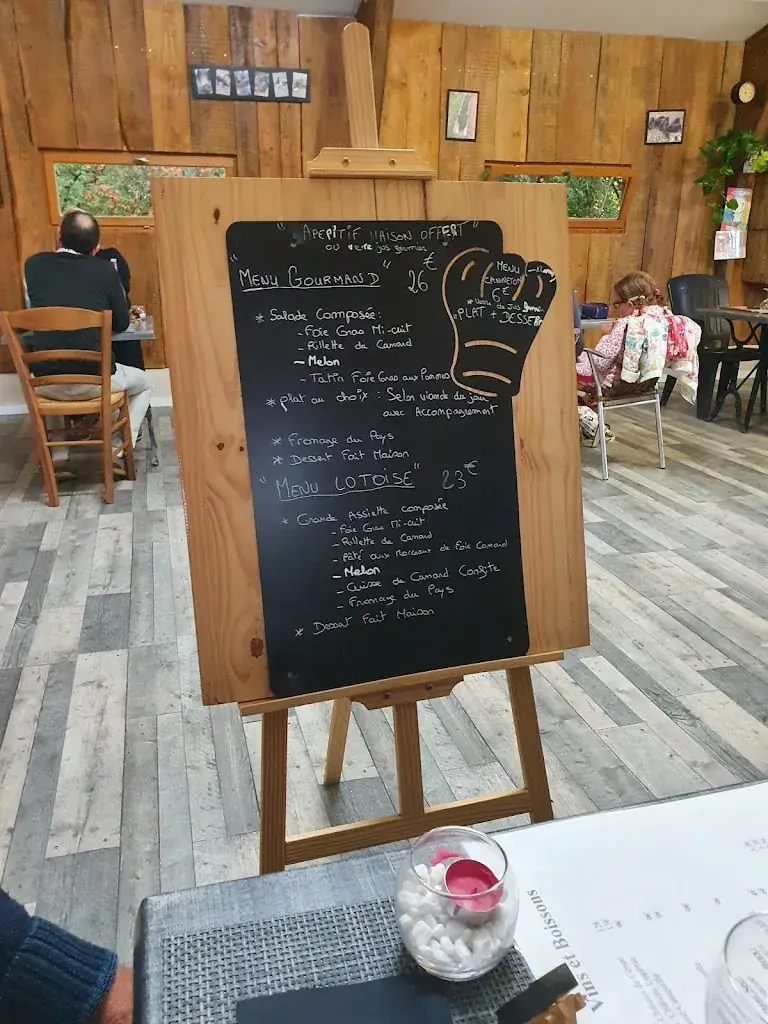 " APERITIF MAISON OFFERT "
ou verre jus
"MENU GOURMAND" 26€
* Salade Composée:
- Foie Gras Mi-cuit
- Rillette de Canard
- Melon
- Tatin Foie Gras aux Pommes
* plat au choix : Selon viande du jour
avec Accompagnement
* Fromage du Pays
* Dessert Fait Maison
MENU
CANNETON
6€
* Verre de jus
PLAT + DESSERT
"MENU LOTOISE" 23€
* Grande Assiette composée
- Foie Gras Mi-cuit
- Rillette de Canard
- Pâté aux Morceaux de Foie Canard
- Melon
- Cuisse de Canard Confite
- Fromage du Pays
* Dessert Fait Maison
Vins et Boissons